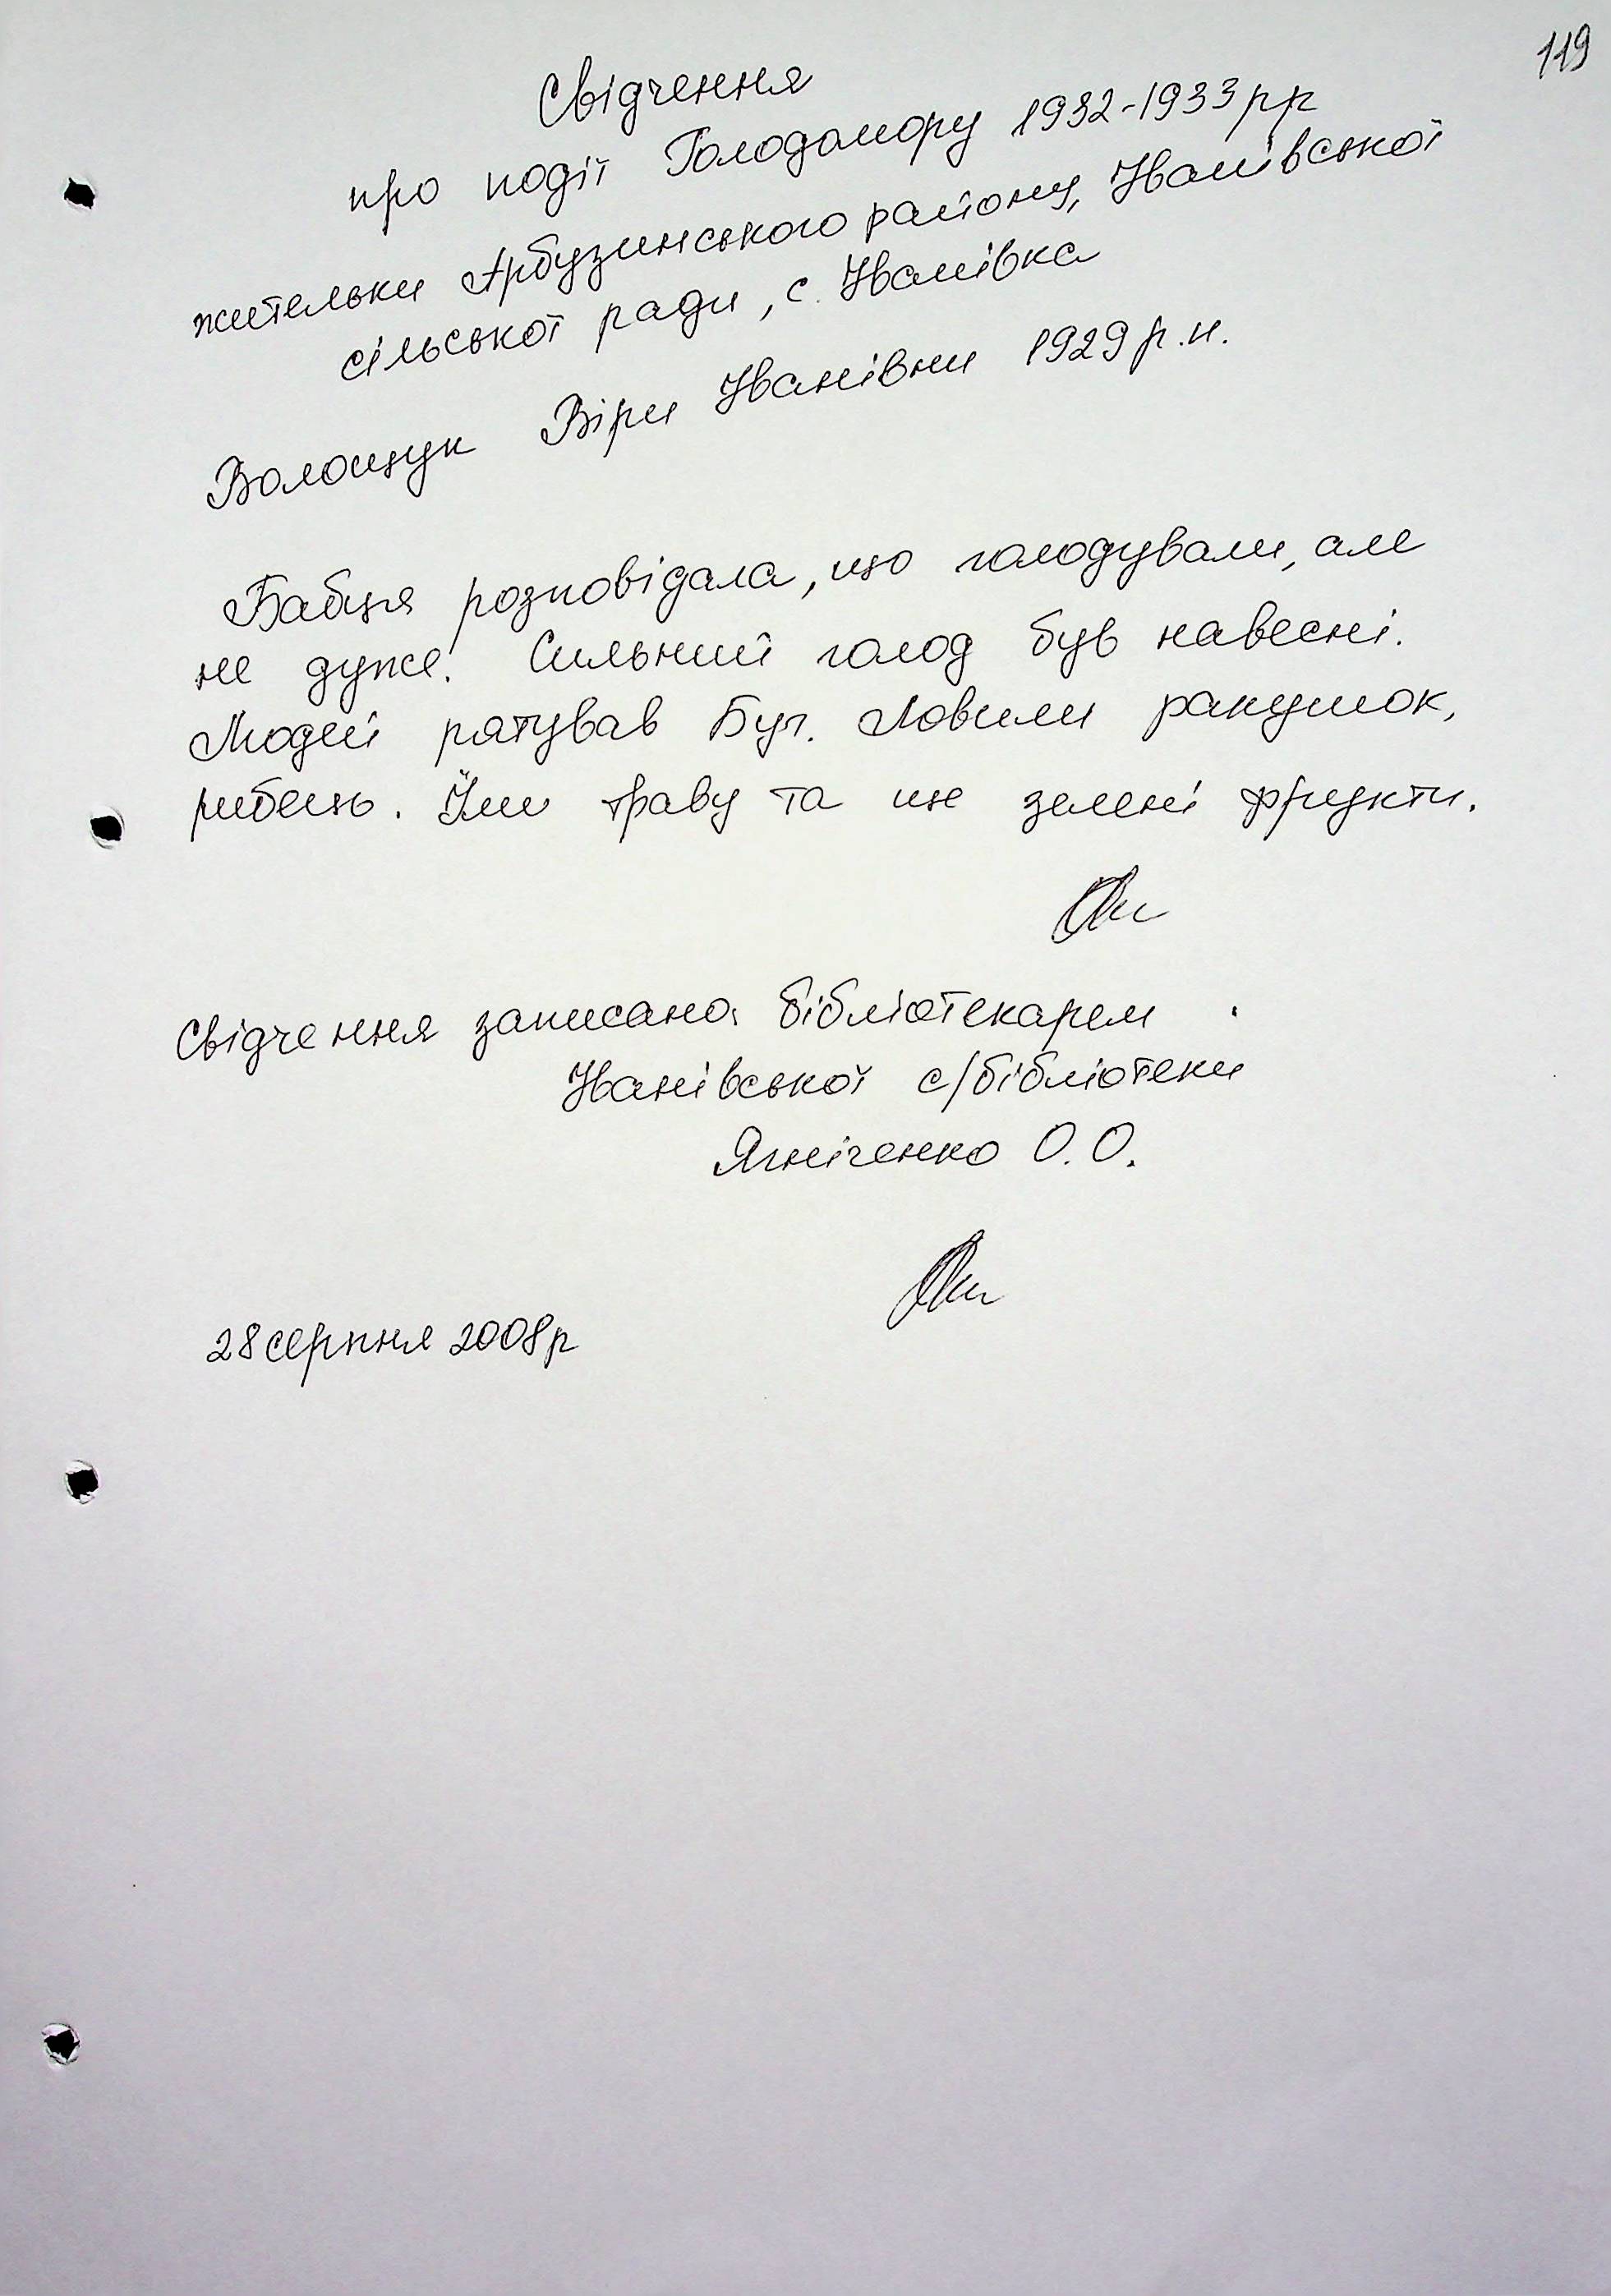 119
Свідчення
про події Голодомору 1932-1933 рр
жительки Арбузинського району, Іванівської
сільської ради, с. Іванівка
Волощук Віри Іванівни 1929 р.н.
Бабця розповідала, що голодували, але
не дуже. Сильний голод був навесні.
Людей рятував Буг. Ловили ракушок,
рибець. Їли траву та ще зелені фрукти.
Свідчення записано бібліотекарем
Іванівської с/бібліотеки
Ягніченко О.О.
28 серпня 2008р